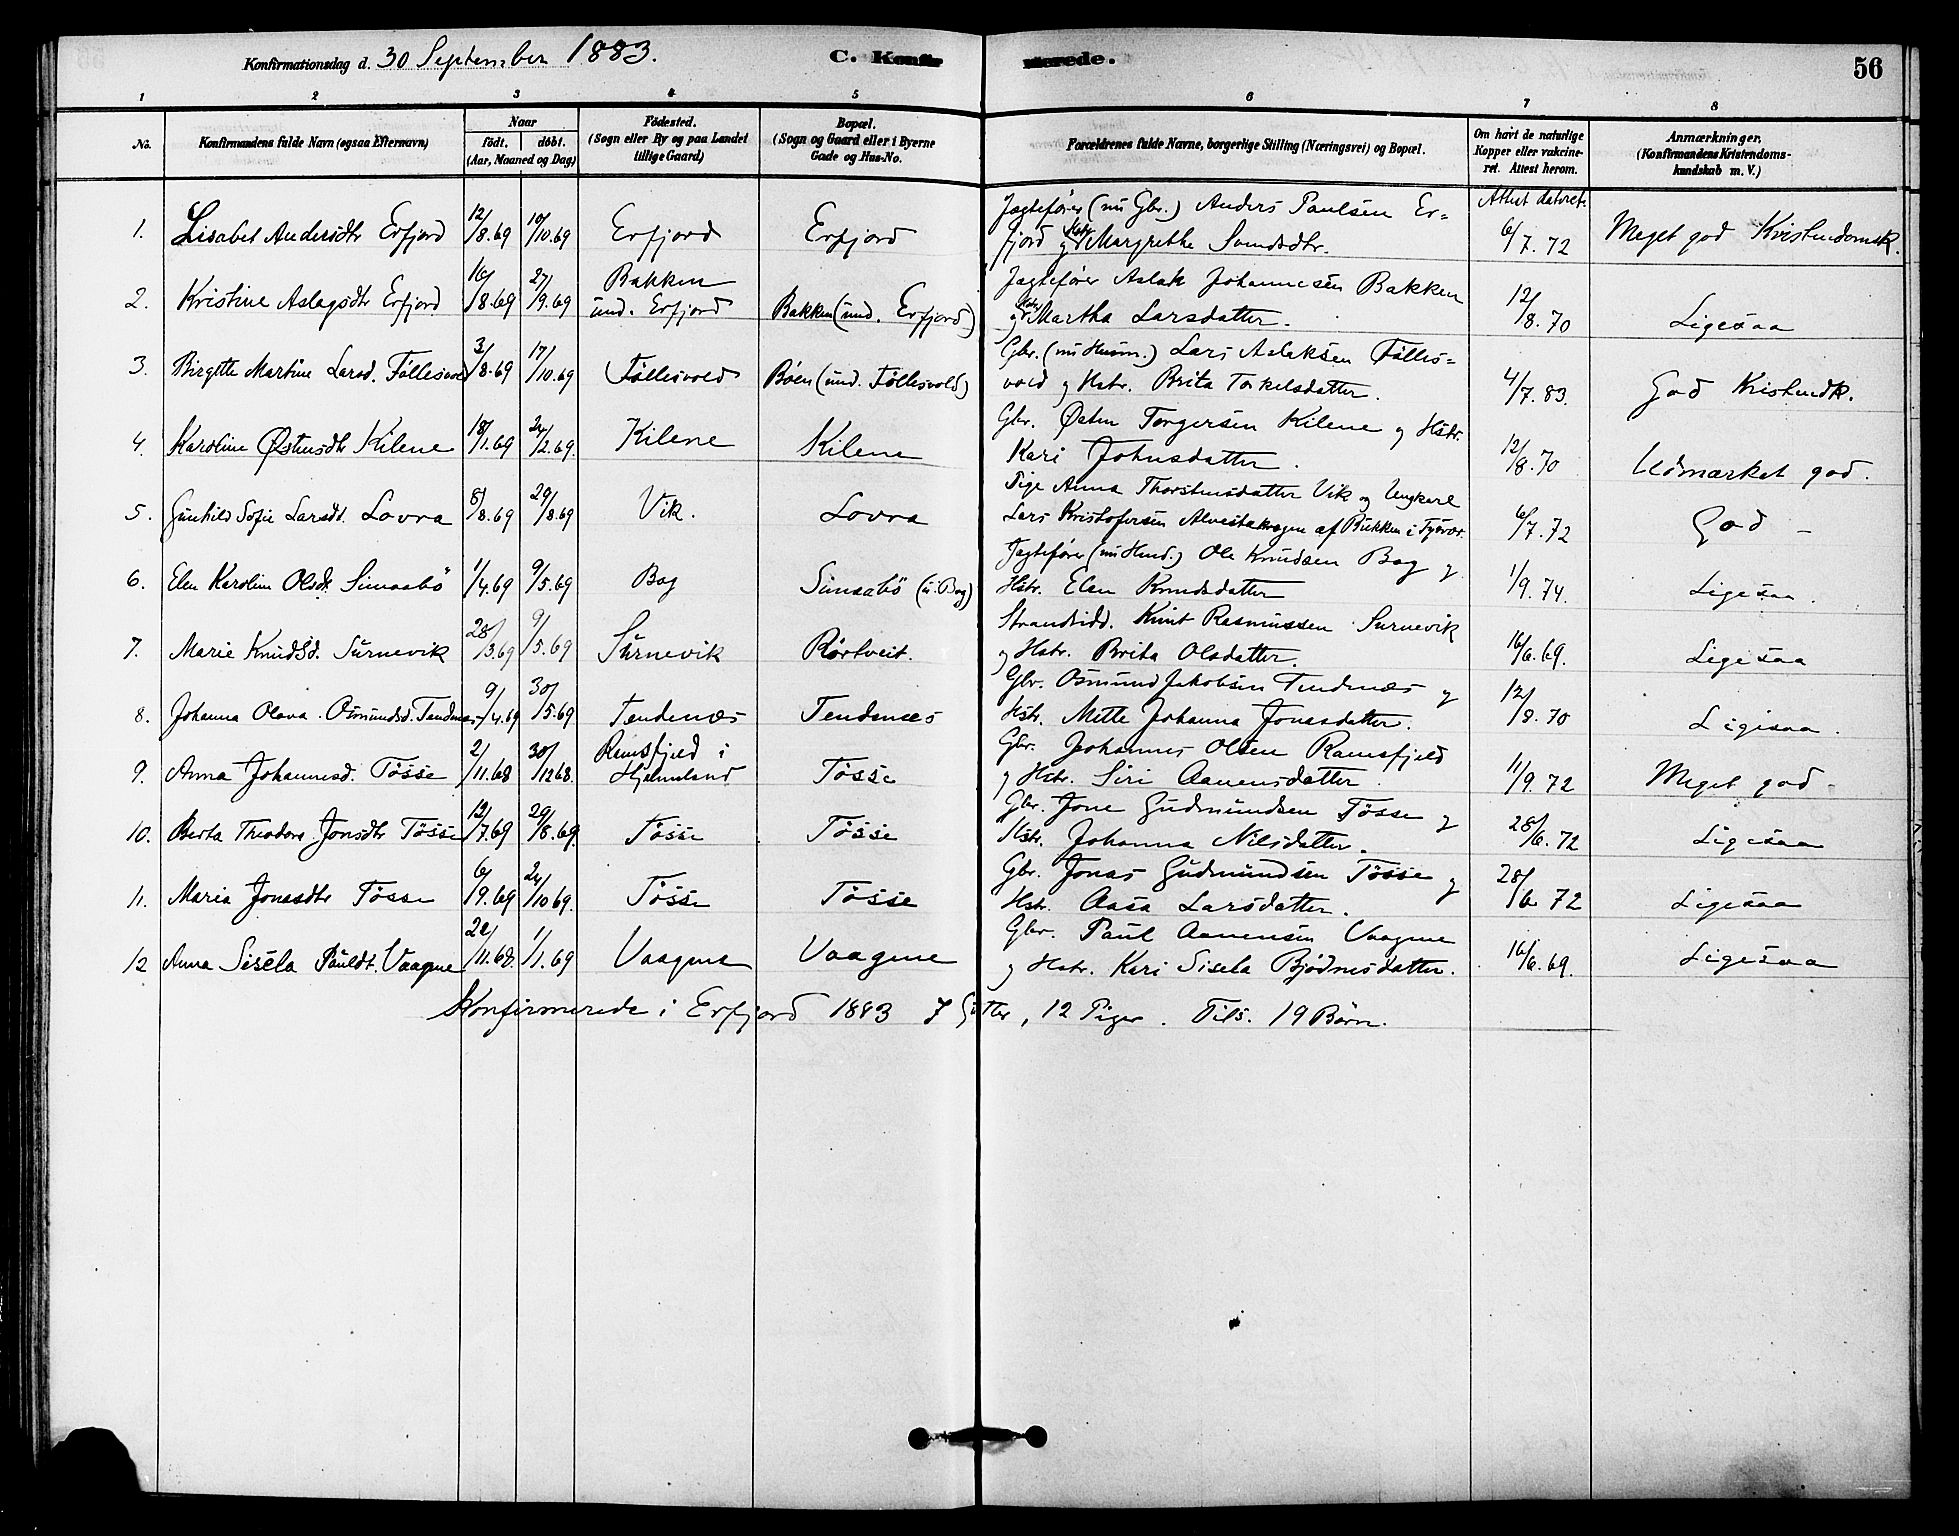 Konfirmationsdag d. 30 September 1883. C. Konfirmerede. 56
1 2 3 4 5 6 7 8
No. Konfirmandens fulde Navn (ogsaa Efternavn) Naar født. døbt. (Aar, Maaned og Dag) Fødested. (Sogn eller By og paa Landet tillige Gaard) Bopæl. (Sogn og Gaard eller i Byerne Gade og Hus-No. Forældrenes fulde Navne, borgerlige Stilling (Næringsvei) og Bopæl. Om havt de naturlige Kopper eller vakcineret. Attest herom. Anmærkninger. (Konfirmandens Kristendomskundskab m. V.)
Attest dateret.
1. Lisabet Andersdtr Erfjord 12/8.69 10/10.69 Erfjord Erfjord Jagtefører (nu Gbr.) Anders Paulsen Er=
fjord og Hstr. Margrethe Svendsdtr. 6/7.72 Meget god Kristendomsk.
2. Kristine Aslagsdtr Erfjord 16/8.69 27/9.69 Bakken und. Erfjord Bakken (und. Erfjord) Jagtefører Aslak Johannesen Bakken
og Hstr. Martha Larsdatter. 12/8.70 Ligesaa
3. Birgitte Martine Larsd. Føllesvold 3/8.69 17/10.69 Føllesvold Bøen (und. Føllesvold) Gbr. (nu Husm.) Lars Aslaksen Følles=
vold og Hstr. Brita Torkelsdatter. 4/7.83. God Kristendk.
4. Karoline Østensdtr Kilene 18/1.69 24/2.69. Kilene Kilene Gbr. Østen Torgersen Kilene og Hstr.
Kari Johnsdatter. 12/8.70 Udmærket god.
5. Gunhild Sofie Larsdt. Lovra 8/8.69 29/8.69 Vik. Lovra Pige Anna Thorstensdatter Vik og Ungkarl
Lars Kristofersen Alvestakrogen af Bukken i Tysvær. 6/7.72 God –
6. Elen Karoline Olsdt. Simaabö 1/4.69 9/5.69 Bog Simaabö (u. Bog) Jagtefører (nu Husm.) Ole Knudsen Bog og
Hstr. Elen Knudsdatter 1/9.74. Ligesaa.
7. Marie Knudsd. Surnevik 28/3.69 9/5.69 Surnevik Rørtveit. Strandsidd. Knut Rasmussen Surnevik
og Hstr. Brita Olsdatter. 16/6.69. Ligesaa
8. Johanna Olava Osmundsd. Tendenæs 9/4.69 30/5.69 Tendenæs Tendenæs Gbr. Osmund Jakobsen Tendenæs og
Hstr. Mette Johanna Jonasdatter. 12/8.70 Ligesaa.
9. Anna Johannesd. Tösse 2/11.68 30/12 68. Ramsfjeld i Hjelmeland Tösse Gbr. Johannes Olsen Ramsfjeld
og Hstr. Siri Aanensdatter. 11/9.72 Meget god
10. Berta Theodora Jonsdtr Tösse 12/7.69 29/8.69. Tösse Tösse Gbr. Jone Gudmundsen Tösse og
Hstr. Johanna Nilsdatter. 28/6.72 Ligesaa
11. Maria Jonasdtr Tösse 6/9.69 24/10 69. Tösse Tösse Gbr. Jonas Gudmundsen Tösse og
Hstr. Aasa Larsdatter. 28/6.72 Ligesaa
12 Anna Sisela Pauldt. Vaagene 22/11.68. 1/1.69 Vaagene Vaagene Gbr. Paul Aanensen Vaagene
og Hstr. Kari Sisela Bjødnesdatter. 16/6.69. Ligesaa
Konfirmerede i Erfjord 1883 7 Gutter, 12 Piger. Tils. 19 Børn.